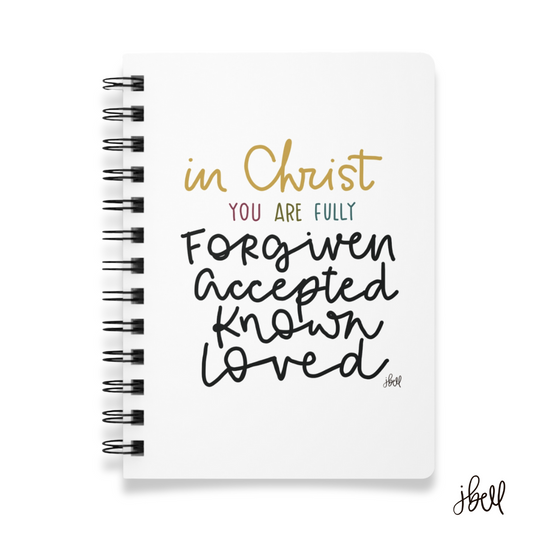 in Christ
YOU ARE FULLY
Forgiven
accepted
Known
loved.
jbell
jbell